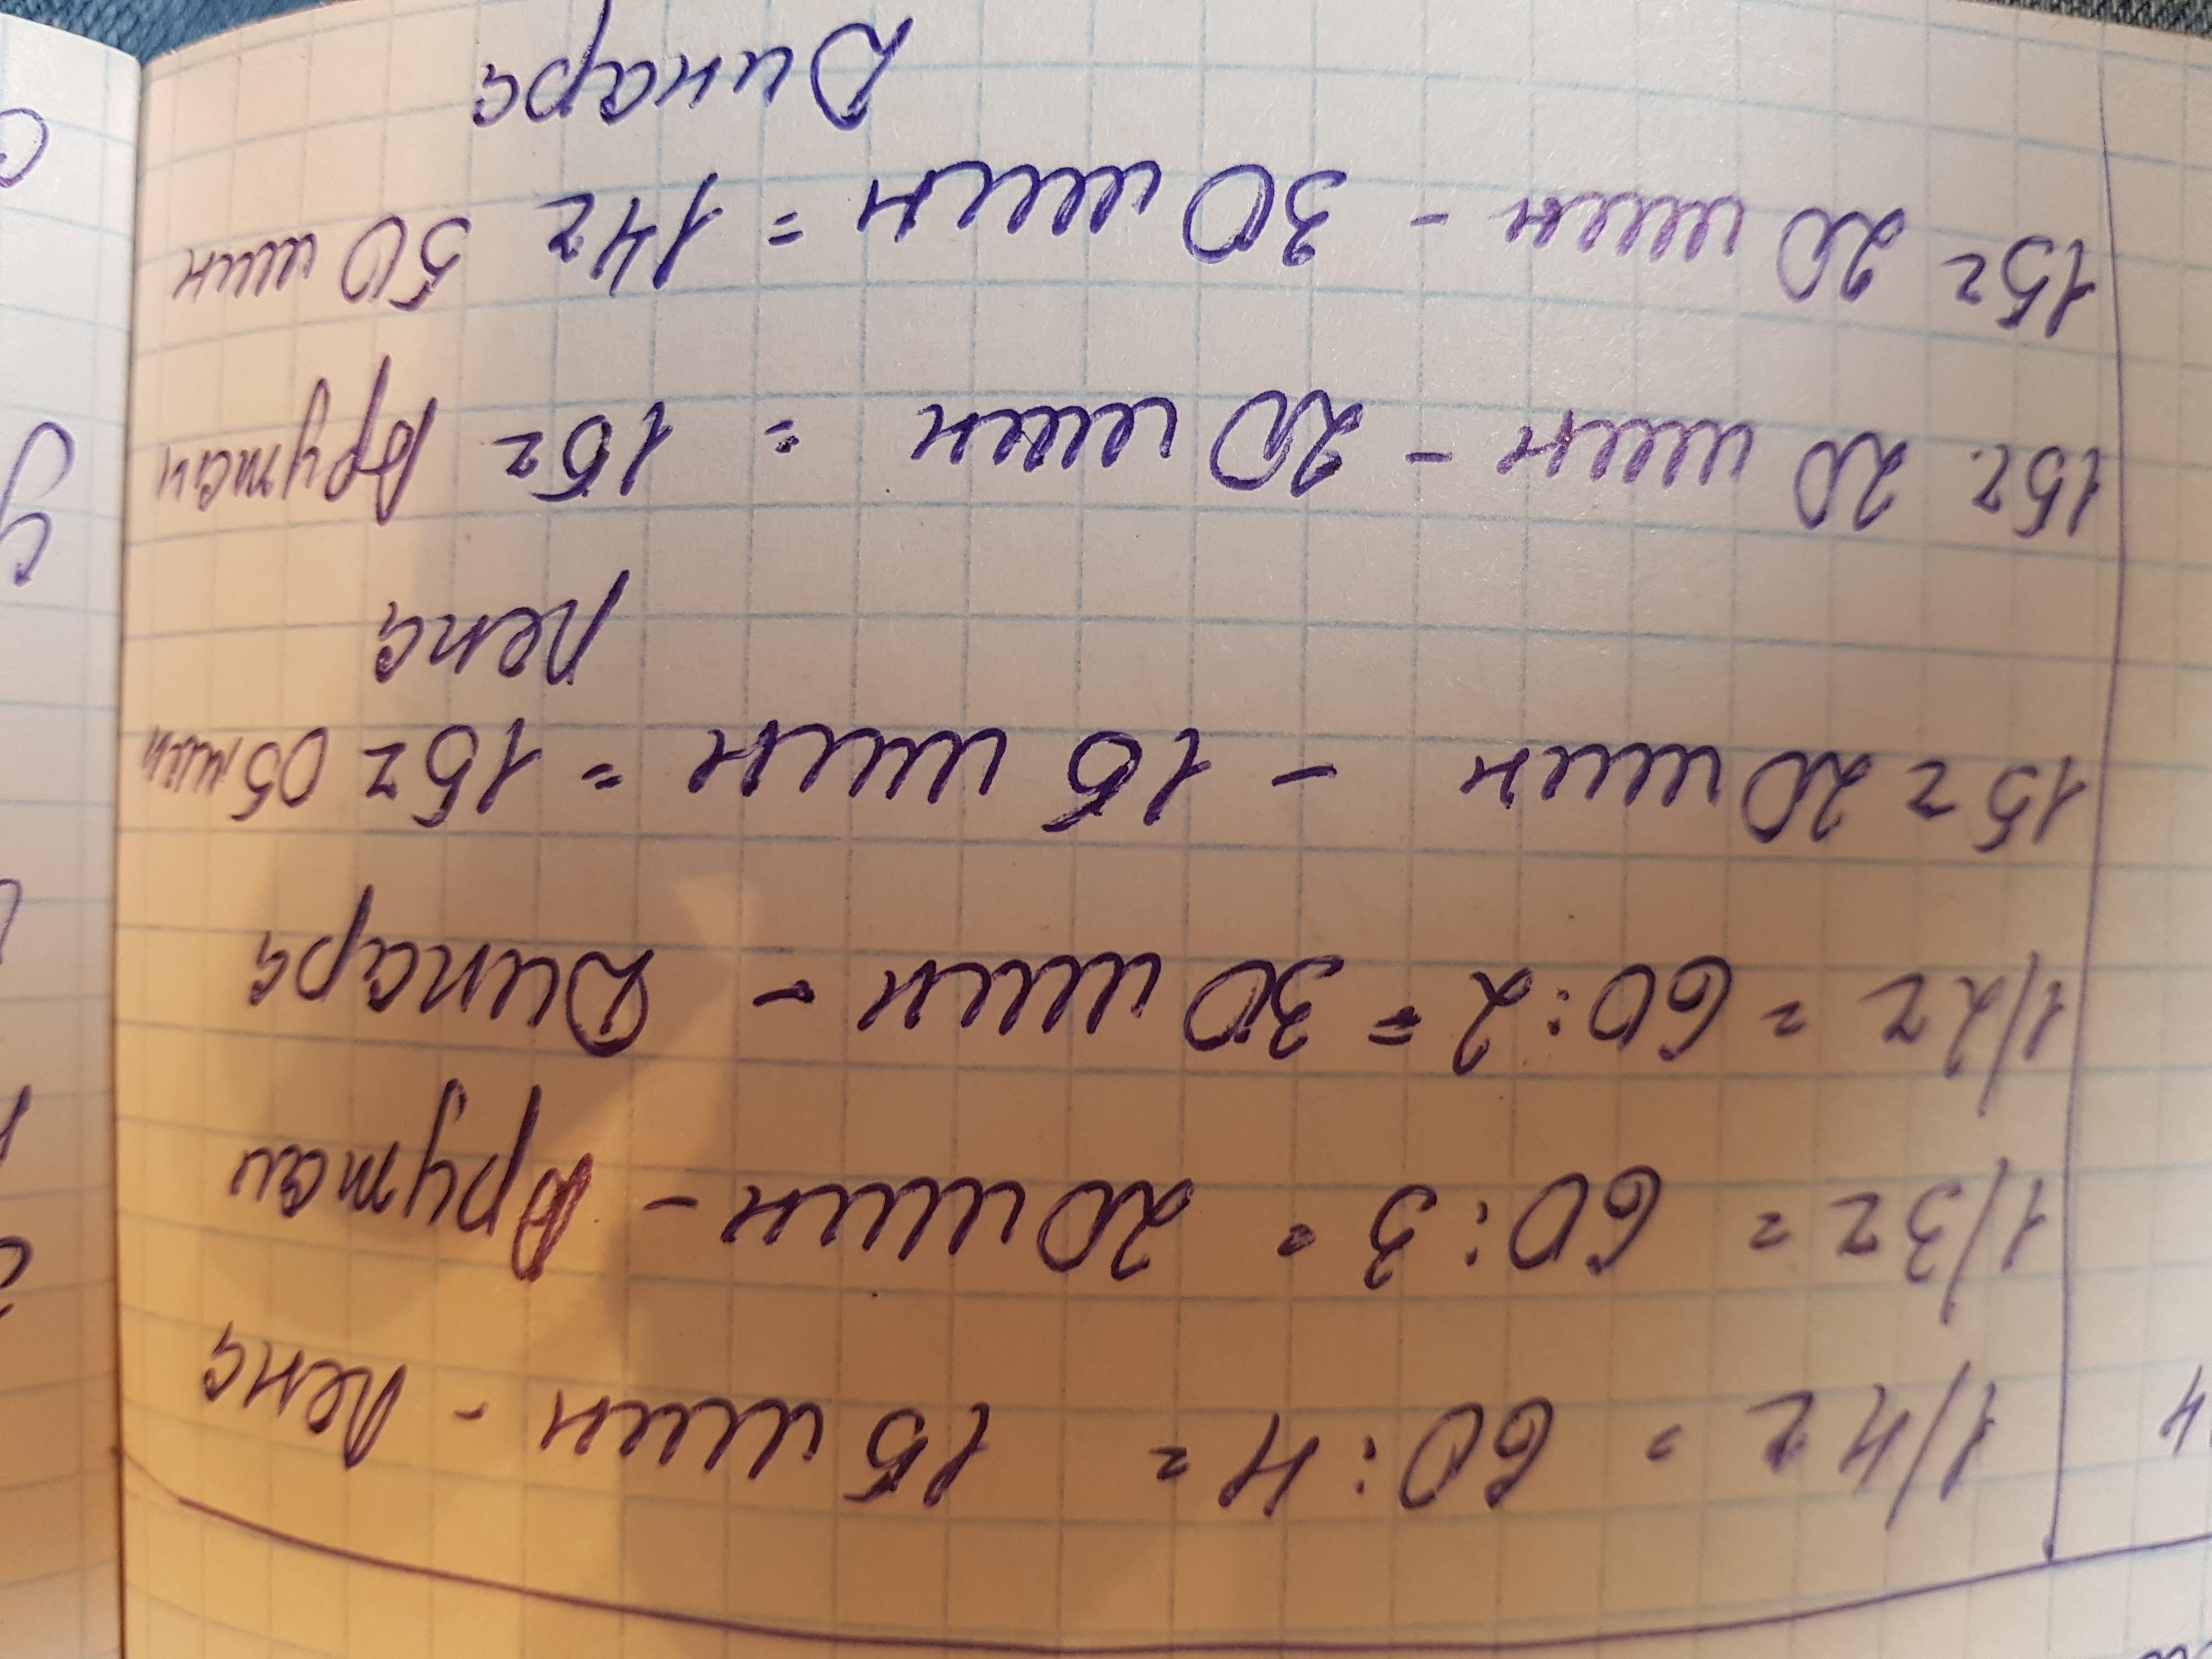 1/4 ч = 60:4 = 15 мин - Лена
1/3 ч = 60:3 = 20 мин - Арутай
1/2 ч = 60:2 = 30 мин - Динара
15 ч 20 мин - 15 мин = 15 ч 05 мин
Лена
15 ч 20 мин - 20 мин = 15 ч Арутай
15 ч 20 мин - 30 мин = 14 ч 50 мин
Динара